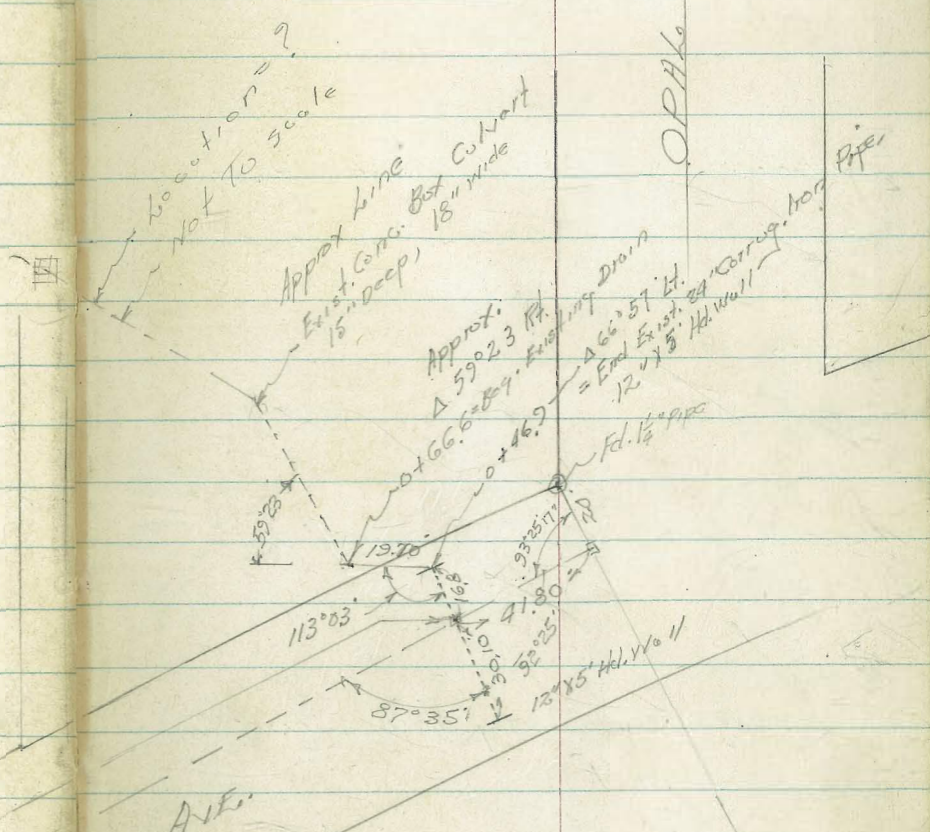 Location = ?
Not To Scale
OPAL
Approx Line
Exist. Conc. Box Culvert
15" Deep, 18" Wide
Approx.
Δ 59°23 Rt.
0+66.6=Beg. Existing Drain
0+46.9
Δ 66°57' Lt.
= End Exist. 24" Corrug. Iron Pipe,
12" X 5' Hd. Wall
Fd. 1¼" Pipe
59°23'
19.70'
93°25'17"
20
113°03'
16.8
41.80
30.10
92°25'
12" X 5' Hd. Wall
87°35'
AVE.